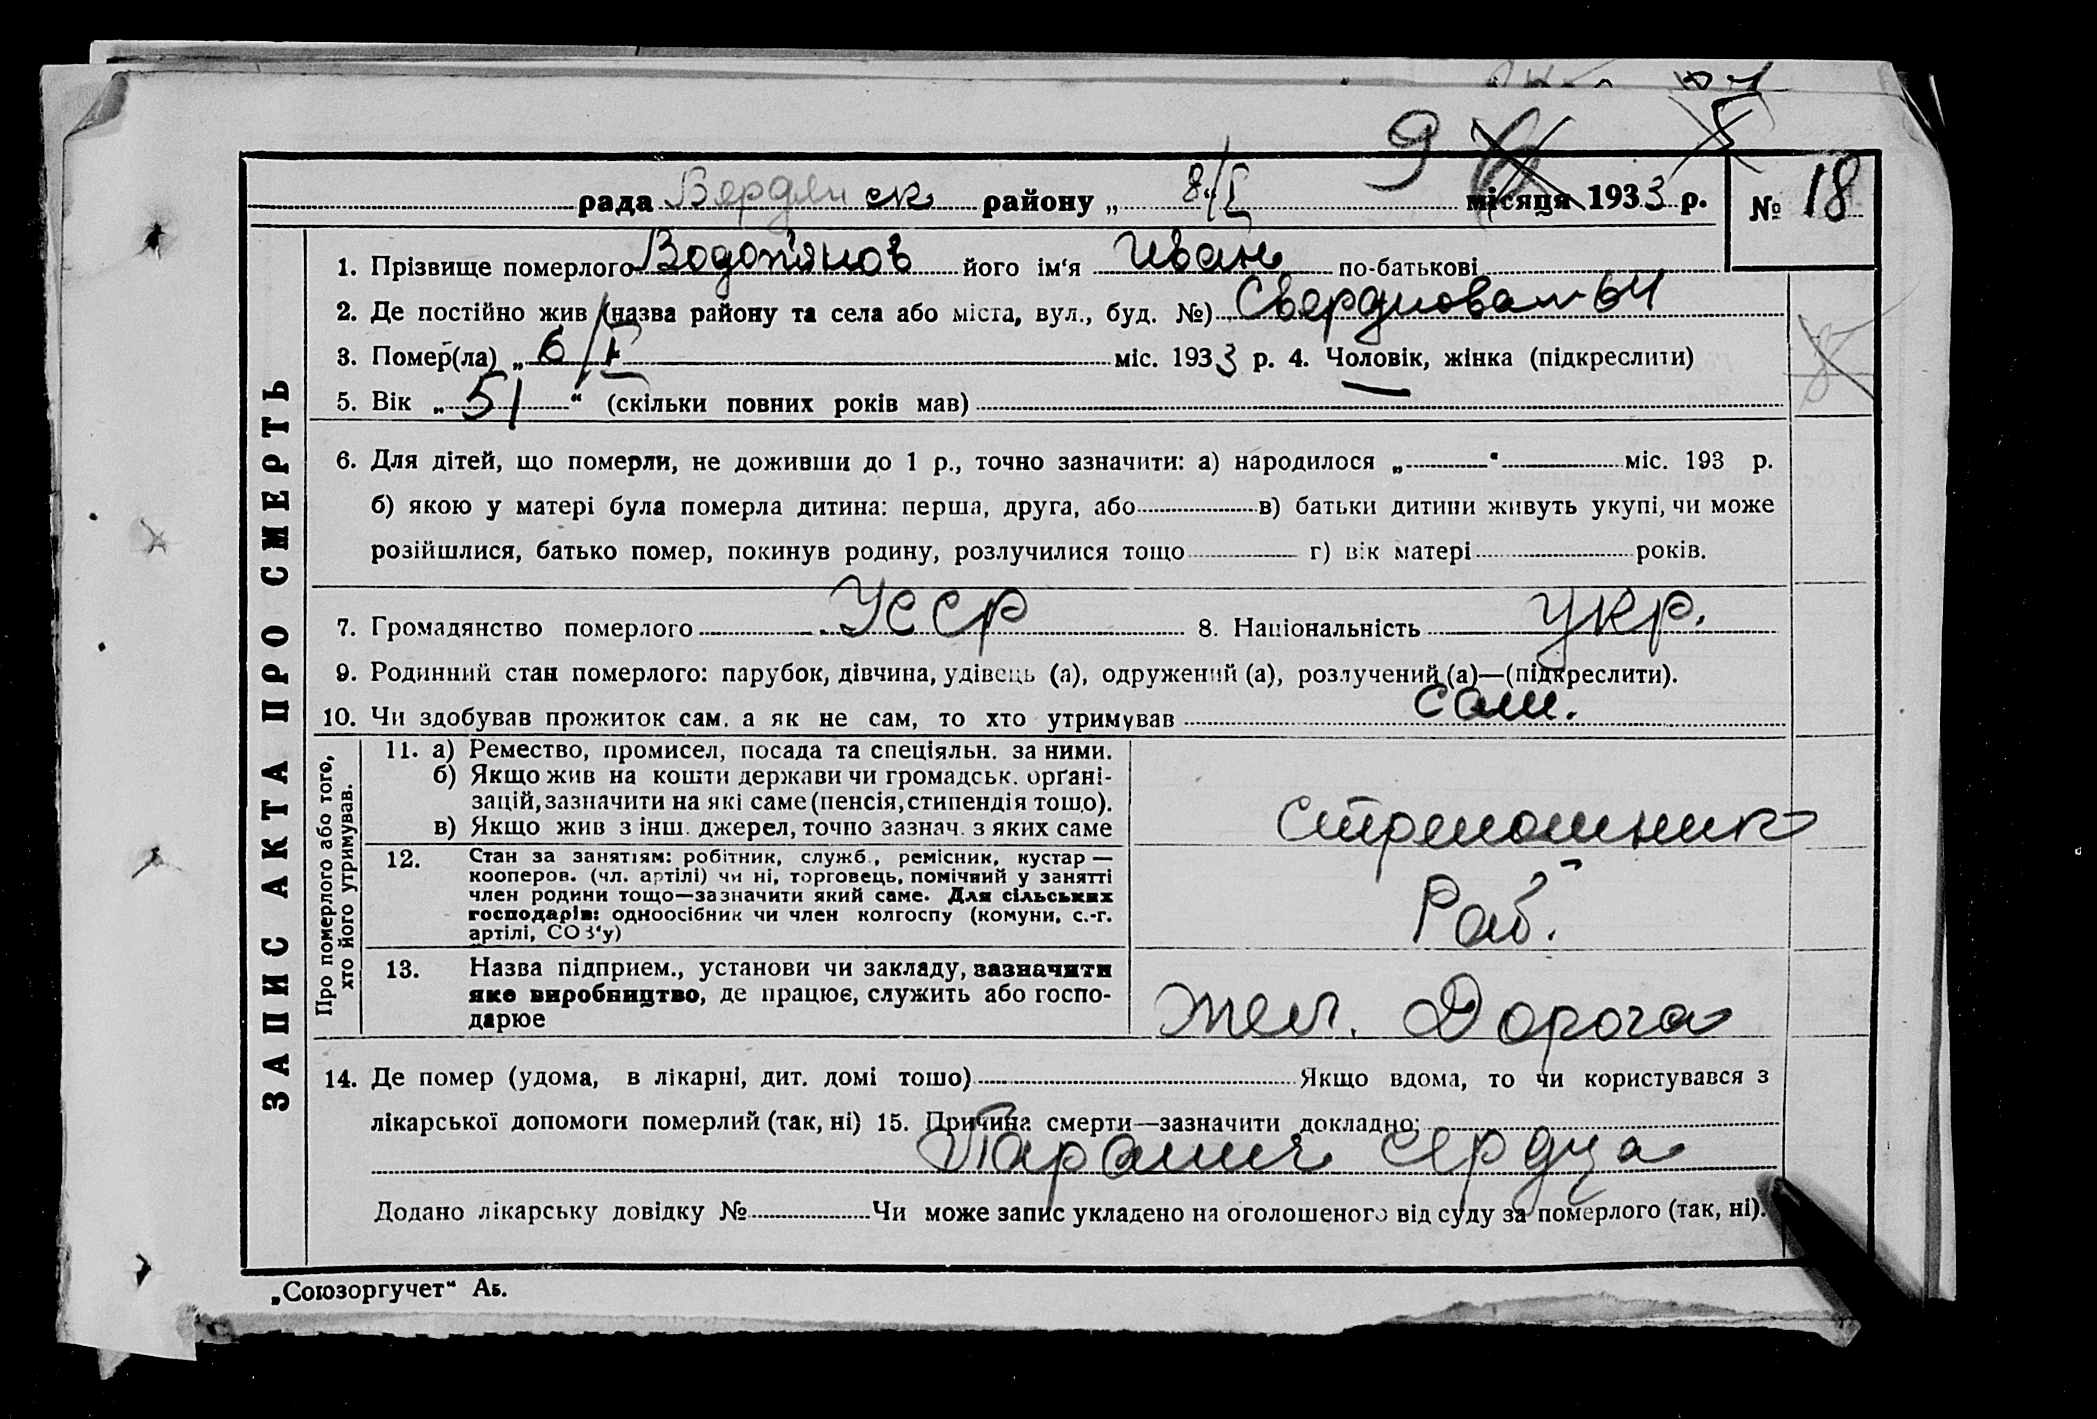 9
рада Бердянск району „ 8/I місяця 1933 р. № 18
1. Прізвище померлого Водопянов його ім'я Иван по-батькові
2. Де постійно жив (назва району та села або міста, вул., буд. №) Свердлова 64
3. Помер(ла) „ 6/I міс. 1933 р. 4. Чоловік, жінка (підкреслити)
5. Вік „ 51 “ (скільки повних років мав)
6. Для дітей, що померли, не доживши до 1 р., точно зазначити: а) народилося „ “ міс. 193 р.
б) якою у матері була померла дитина: перша, друга, або в) батьки дитини живуть укупі, чи може
розійшлися, батько помер, покинув родину, розлучилися тощо г) вік матері років.
7. Громадянство померлого УССР 8. Національність укр.
9. Родинний стан померлого: парубок, дівчина, удівець (а), одружений (а), розлучений (а)—(підкреслити).
10. Чи здобував прожиток сам, а як не сам, то хто утримував сам.
ЗАПИС АКТА ПРО СМЕРТЬ
Про померлого або того,
хто його утримував.
11. а) Ремество, промисел, посада та спеціяльн. за ними.
б) Якщо жив на кошти держави чи громадськ. орґані-
зацій, зазначити на які саме (пенсія, стипендія тощо).
в) Якщо жив з інш. джерел, точно зазнач. з яких саме
стрелошник
12. Стан за заняттям: робітник, служб., ремісник, кустар —
кооперов. (чл. артілі) чи ні, торговець, помічний у занятті
член родини тощо—зазначити який саме. Для сільських
господарів: одноосібник чи член колгоспу (комуни, с.-г.
артілі, СОЗ'у)
Раб.
13. Назва підприєм., установи чи закладу, зазначити
яке виробництво, де працює, служить або госпо-
дарює
Жел. Дорога
14. Де помер (удома, в лікарні, дит. домі тощо) Якщо вдома, то чи користувався з
лікарської допомоги померлий (так, ні) 15. Причина смерти—зазначити докладно:
Паралич сердца
Додано лікарську довідку № Чи може запис укладено на оголошеного від суду за померлого (так, ні).
„Союзоргучет“ Аб.